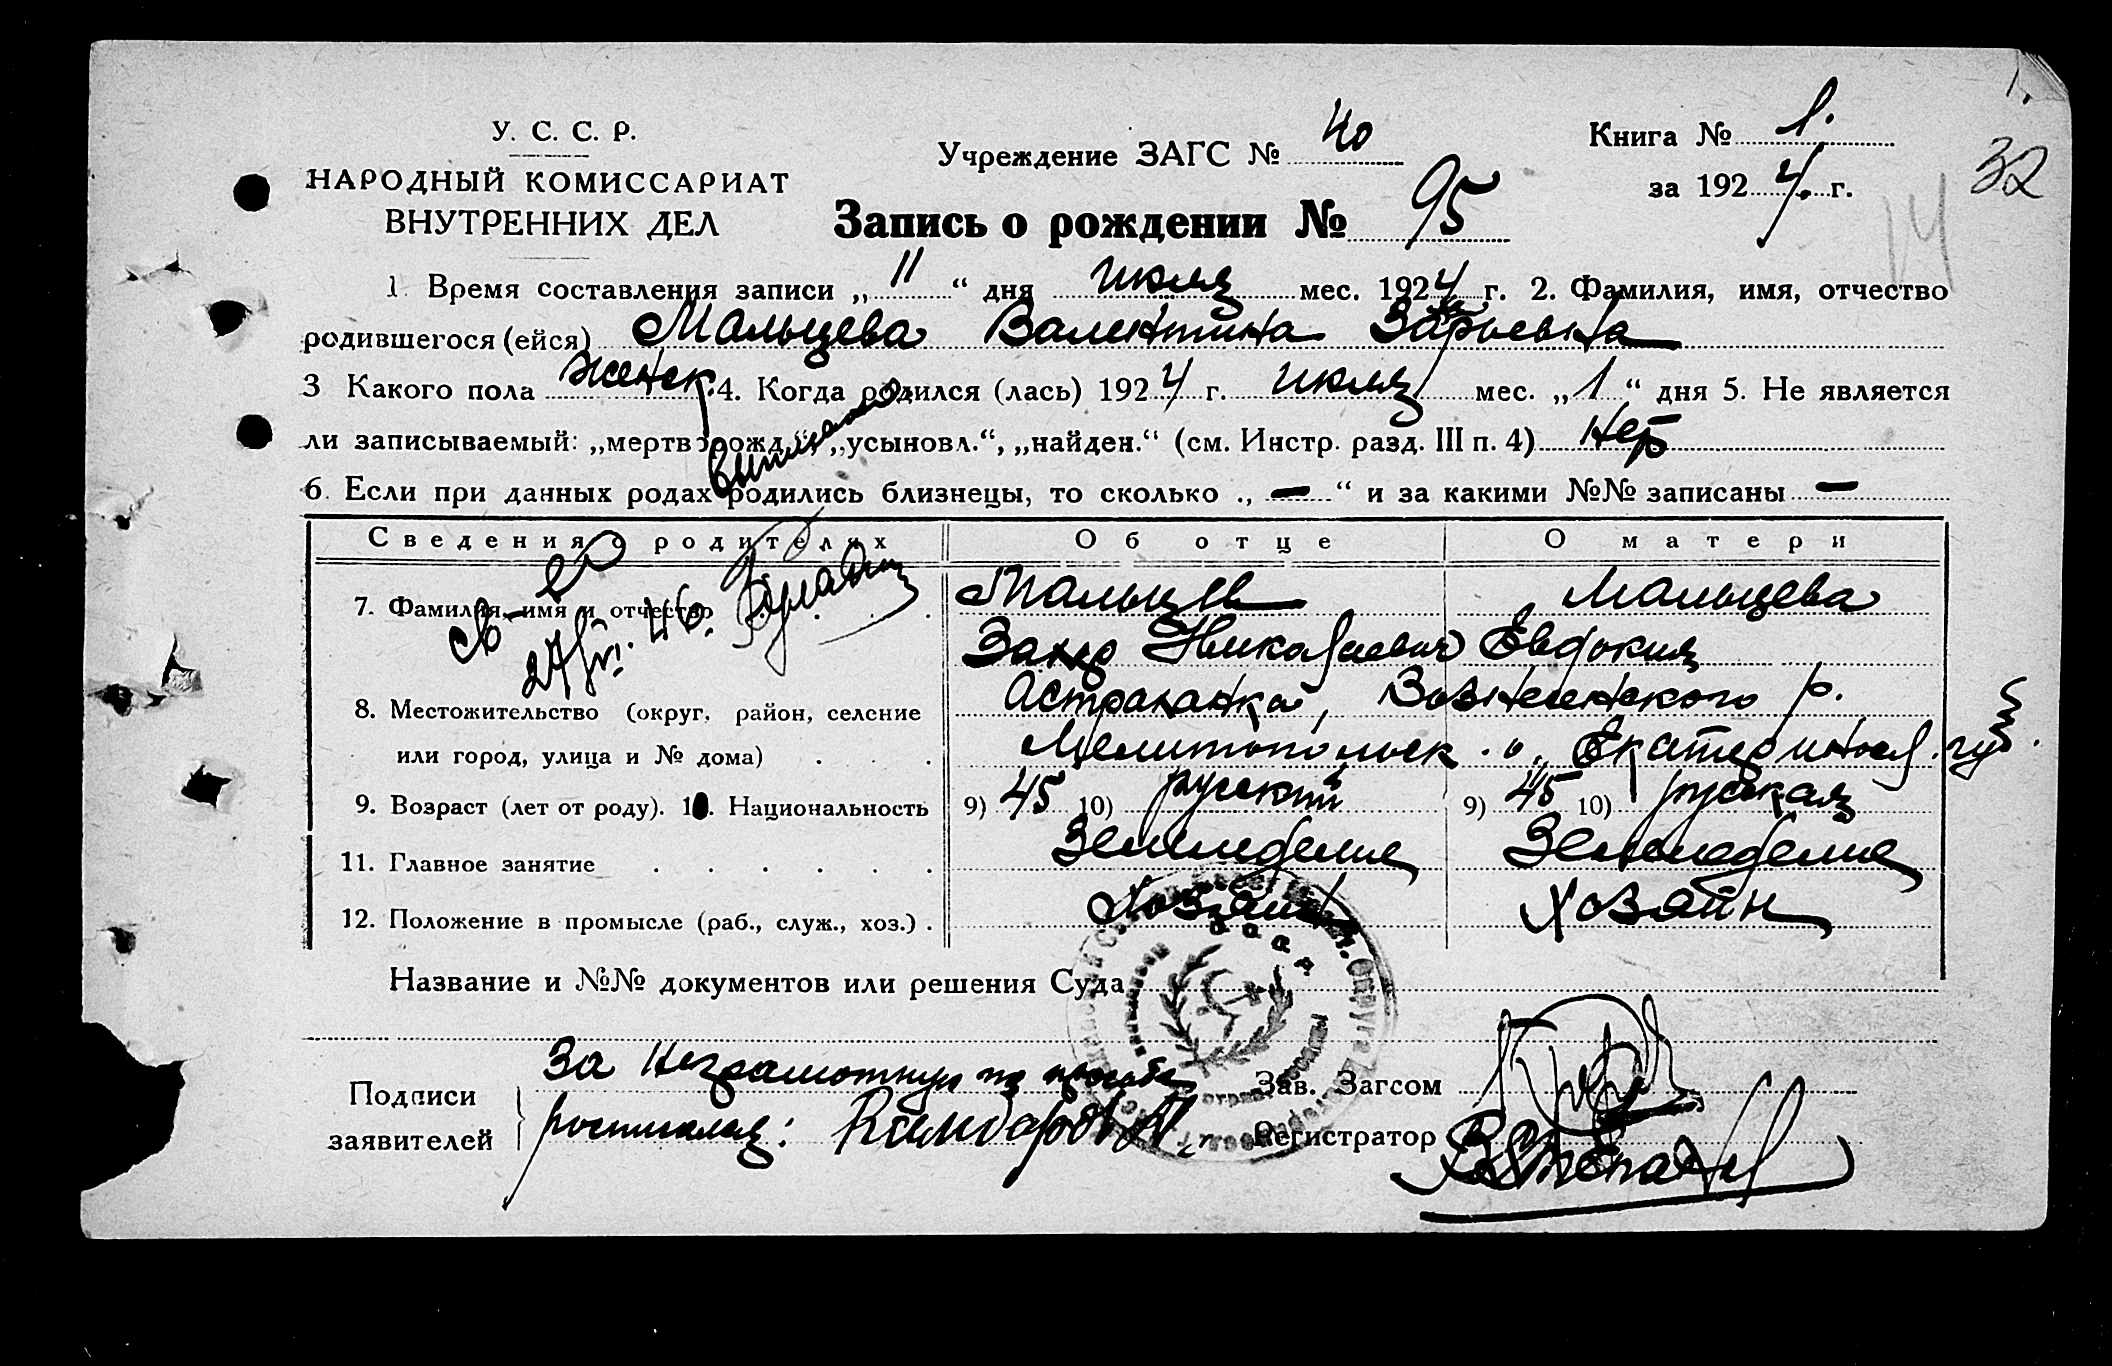 1.
У. С. С. Р.
НАРОДНЫЙ КОМИССАРИАТ
ВНУТРЕННИХ ДЕЛ
Учреждение ЗАГС № 40
Книга № 1.
за 1924. г.
32
14
Запись о рождении № 95
1. Время составления записи „11“ дня июля мес. 1924 г. 2. Фамилия, имя, отчество
родившегося (ейся) Мальцева Валентина
3 Какого пола женск. 4. Когда родился (лась) 1924 г. июля мес. „1“ дня 5. Не является
ли записываемый: „мертворожд.“, „усыновл.“, „найден.“ (см. Инстр. разд. III п. 4) Нет
6. Если при данных родах родились близнецы, то сколько „—“ и за какими №№ записаны —
Сведения о родителях Об отце О матери
7. Фамилия, имя и отчество Мальцев Мальцева
Захар Николаевич Евдокия
8. Местожительство (округ, район, селение Астраханка, Вознесенского р.
или город, улица и № дома) Мелитопольск. о., Екатериносл. губ.
9. Возраст (лет от роду). 10. Национальность 9) 45 10) русский 9) 45 10) русская
11. Главное занятие Земледелие Земледелие
12. Положение в промысле (раб., служ., хоз.) Хозяин Хозяин
Название и №№ документов или решения Суда
Подписи
заявителей
За неграмотную по просьбе
росписалась:
Зав. Загсом
Регистратор